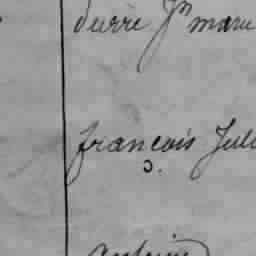 pierre Jn marie
françois Jule
antoine